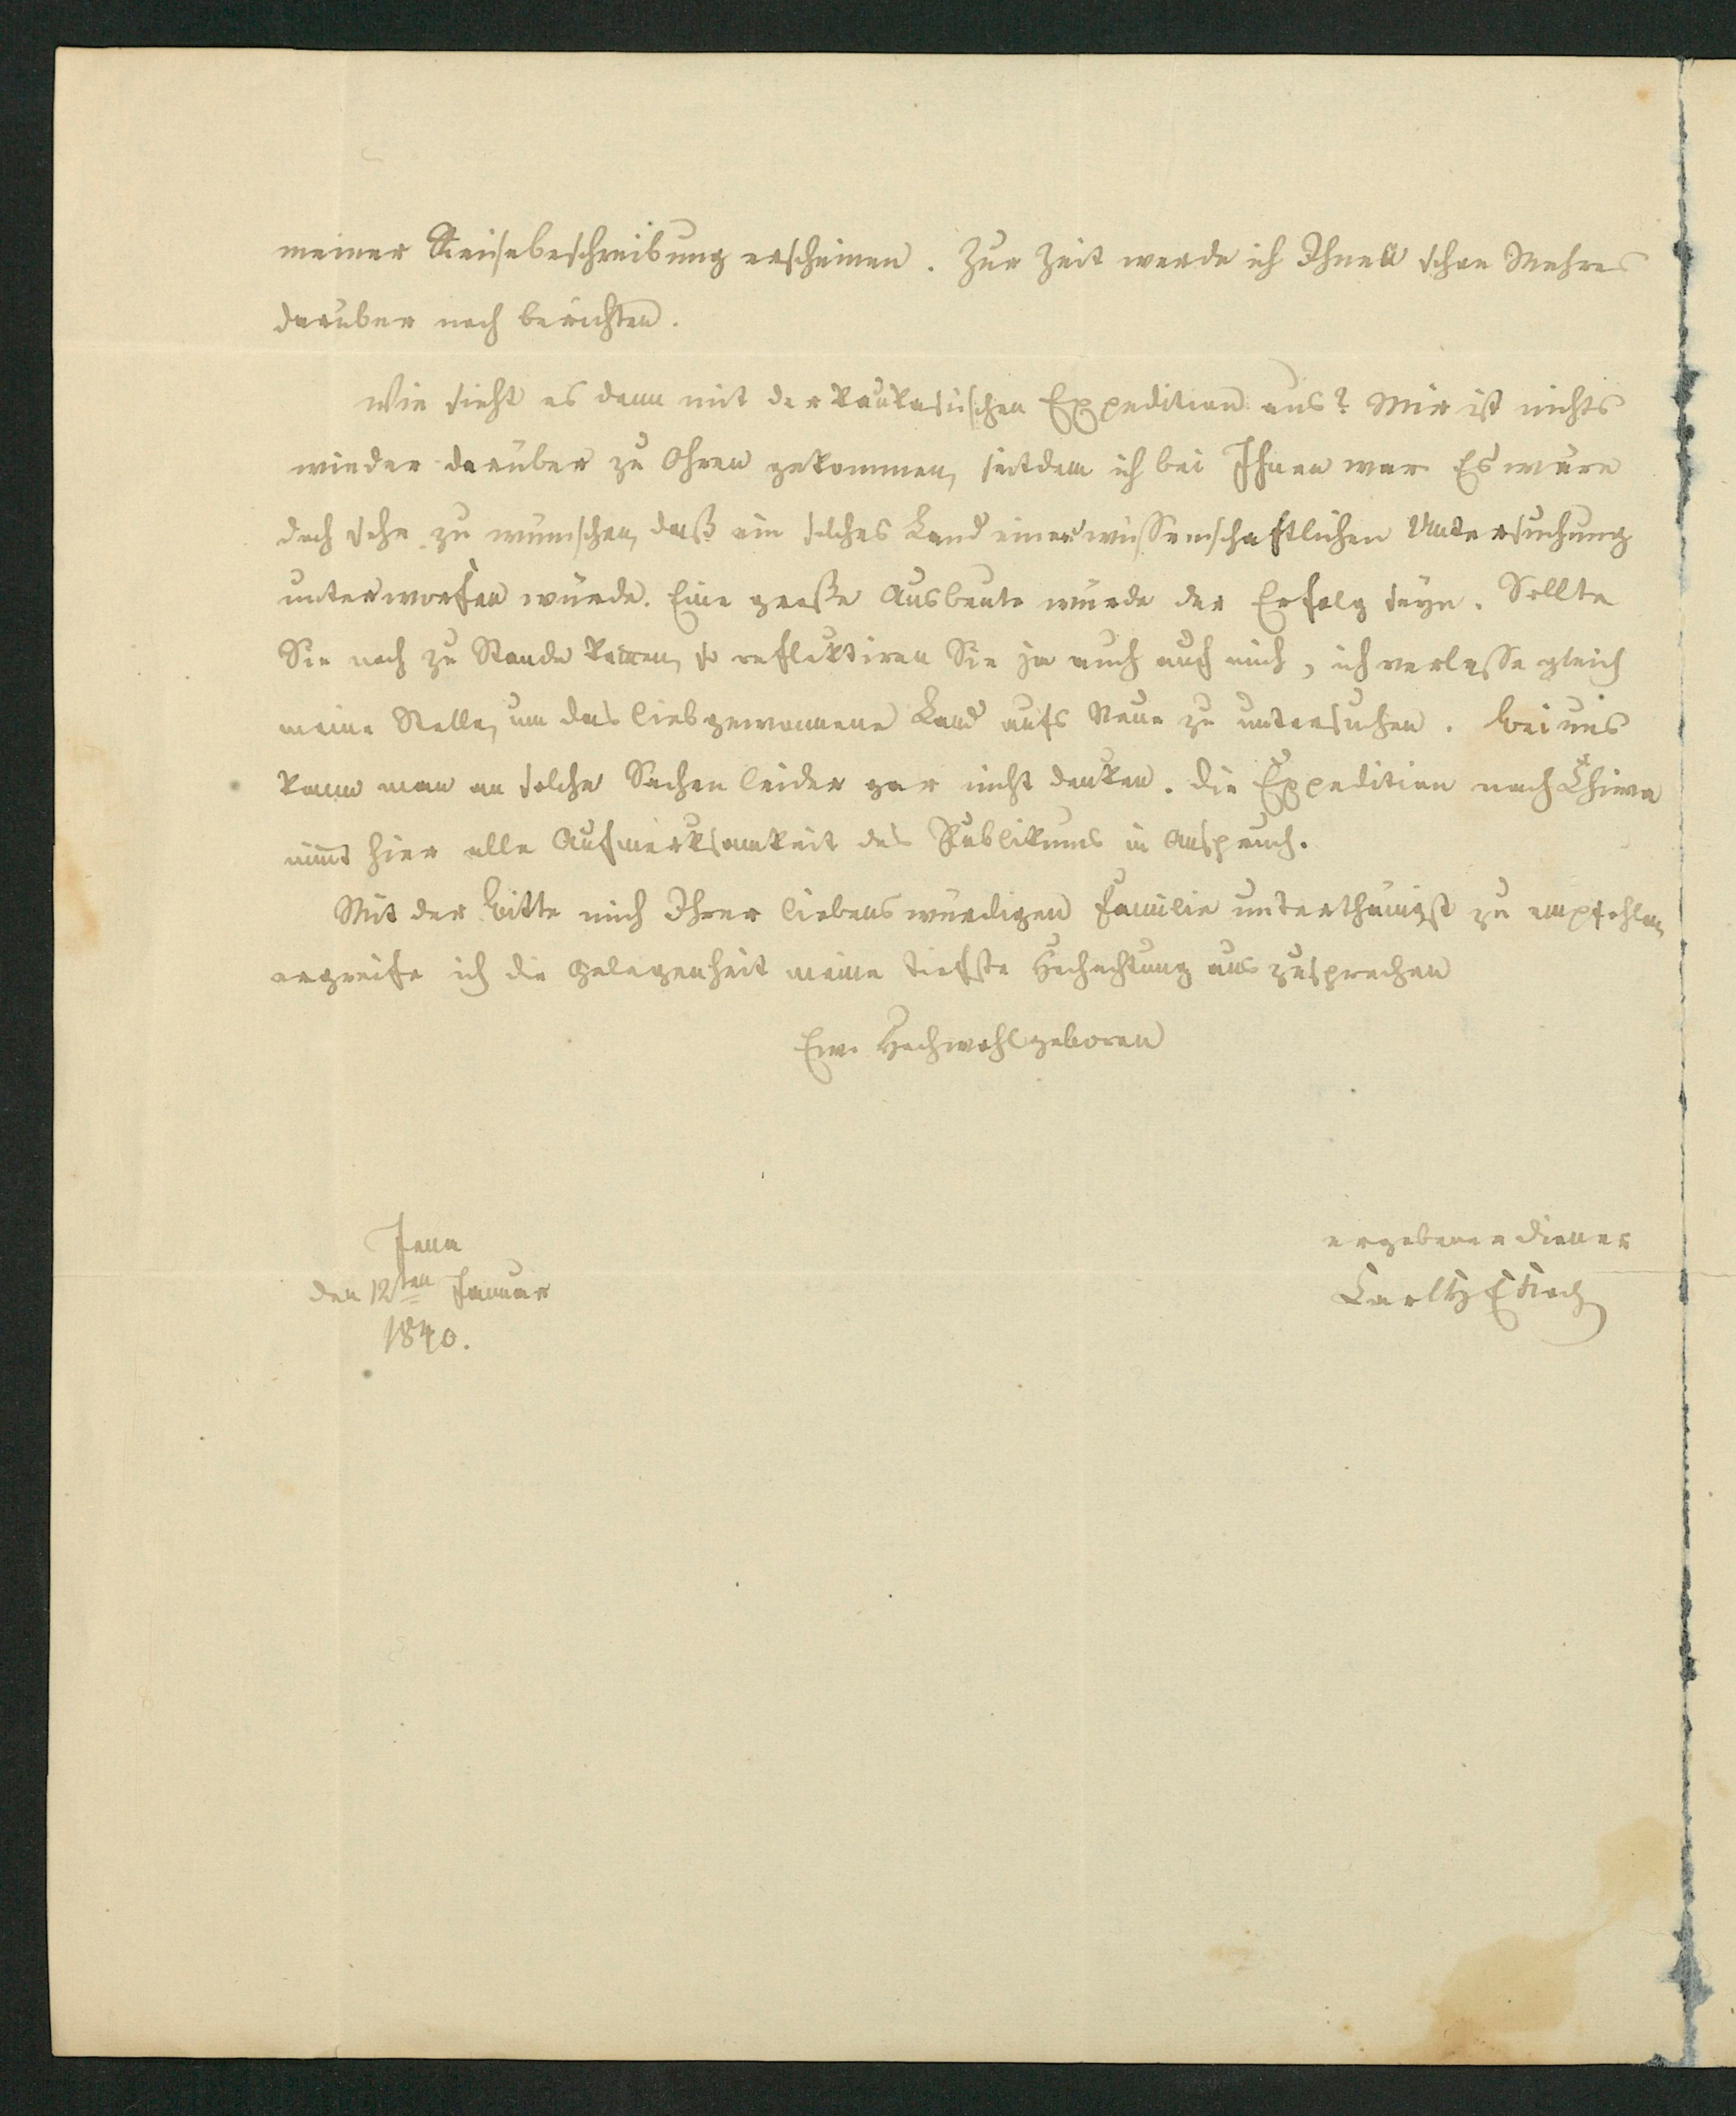 meiner Reisebeschreibung erscheinen. Zur Zeit werde ich Ihnen schon Mehres
darüber noch berichten.
Wie sieht es denn mit der kaukasischen Expedition aus? Mir ist nichts
wieder darüber zu Ohren gekommen, seitdem ich bei Ihnen war. Es wäre
doch sehr zu wünschen, daß ein solches Land einer wissenschaftlichen Untersuchung
unterworfen würde. Eine große Ausbeute würde der Erfolg seyn. Sollte
Sie noch zu Stande kom̄en, so reflektiren Sie ja auch auf mich, ich verlasse gleich
meine Stelle, um das liebgewonnene Land aufs Neue zu untersuchen. Bei uns
kann man an solche Sachen leider gar nicht denken. Die Expedition nach Chiwa
nim̄t hier alle Aufmerksamkeit des Publikums in Anspruch.
Mit der Bitte mich Ihrer liebenswürdigen Familie unterthänigst zu empfehlen,
ergreife ich die Gelegenheit meine tiefste Hochachtung auszusprechen
Ew. Hochwohlgeboren
Jena
den 12ten Januar
1840.
ergebener Diener
Carl H E Koch